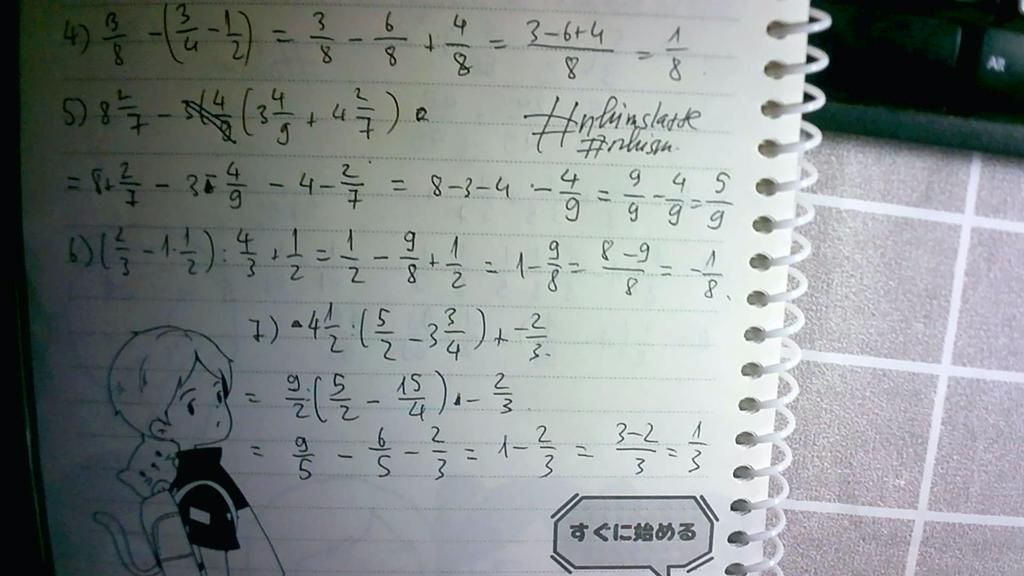 4) 3/8 − (3/4 − 1/2) = 3/8 − 6/8 + 4/8 = (3−6+4)/8 = 1/8
5) 8 2/7 − (3 4/9 + 4 2/7)
= 8 + 2/7 − 3 − 4/9 − 4 − 2/7 = 8 − 3 − 4 − 4/9 = 9/9 − 4/9 = 5/9
6) (2/3 − 1 1/2) : 4/3 + 1/2 = 1/2 − 9/8 + 1/2 = 1 − 9/8 = (8−9)/8 = −1/8.
7) 4 1/2 : (5/2 − 3 3/4) + −2/3.
= 9/2 : (5/2 − 15/4) − 2/3
= 9/5 − 6/5 − 2/3 = 1 − 2/3 = (3−2)/3 = 1/3
すぐに始める
AR